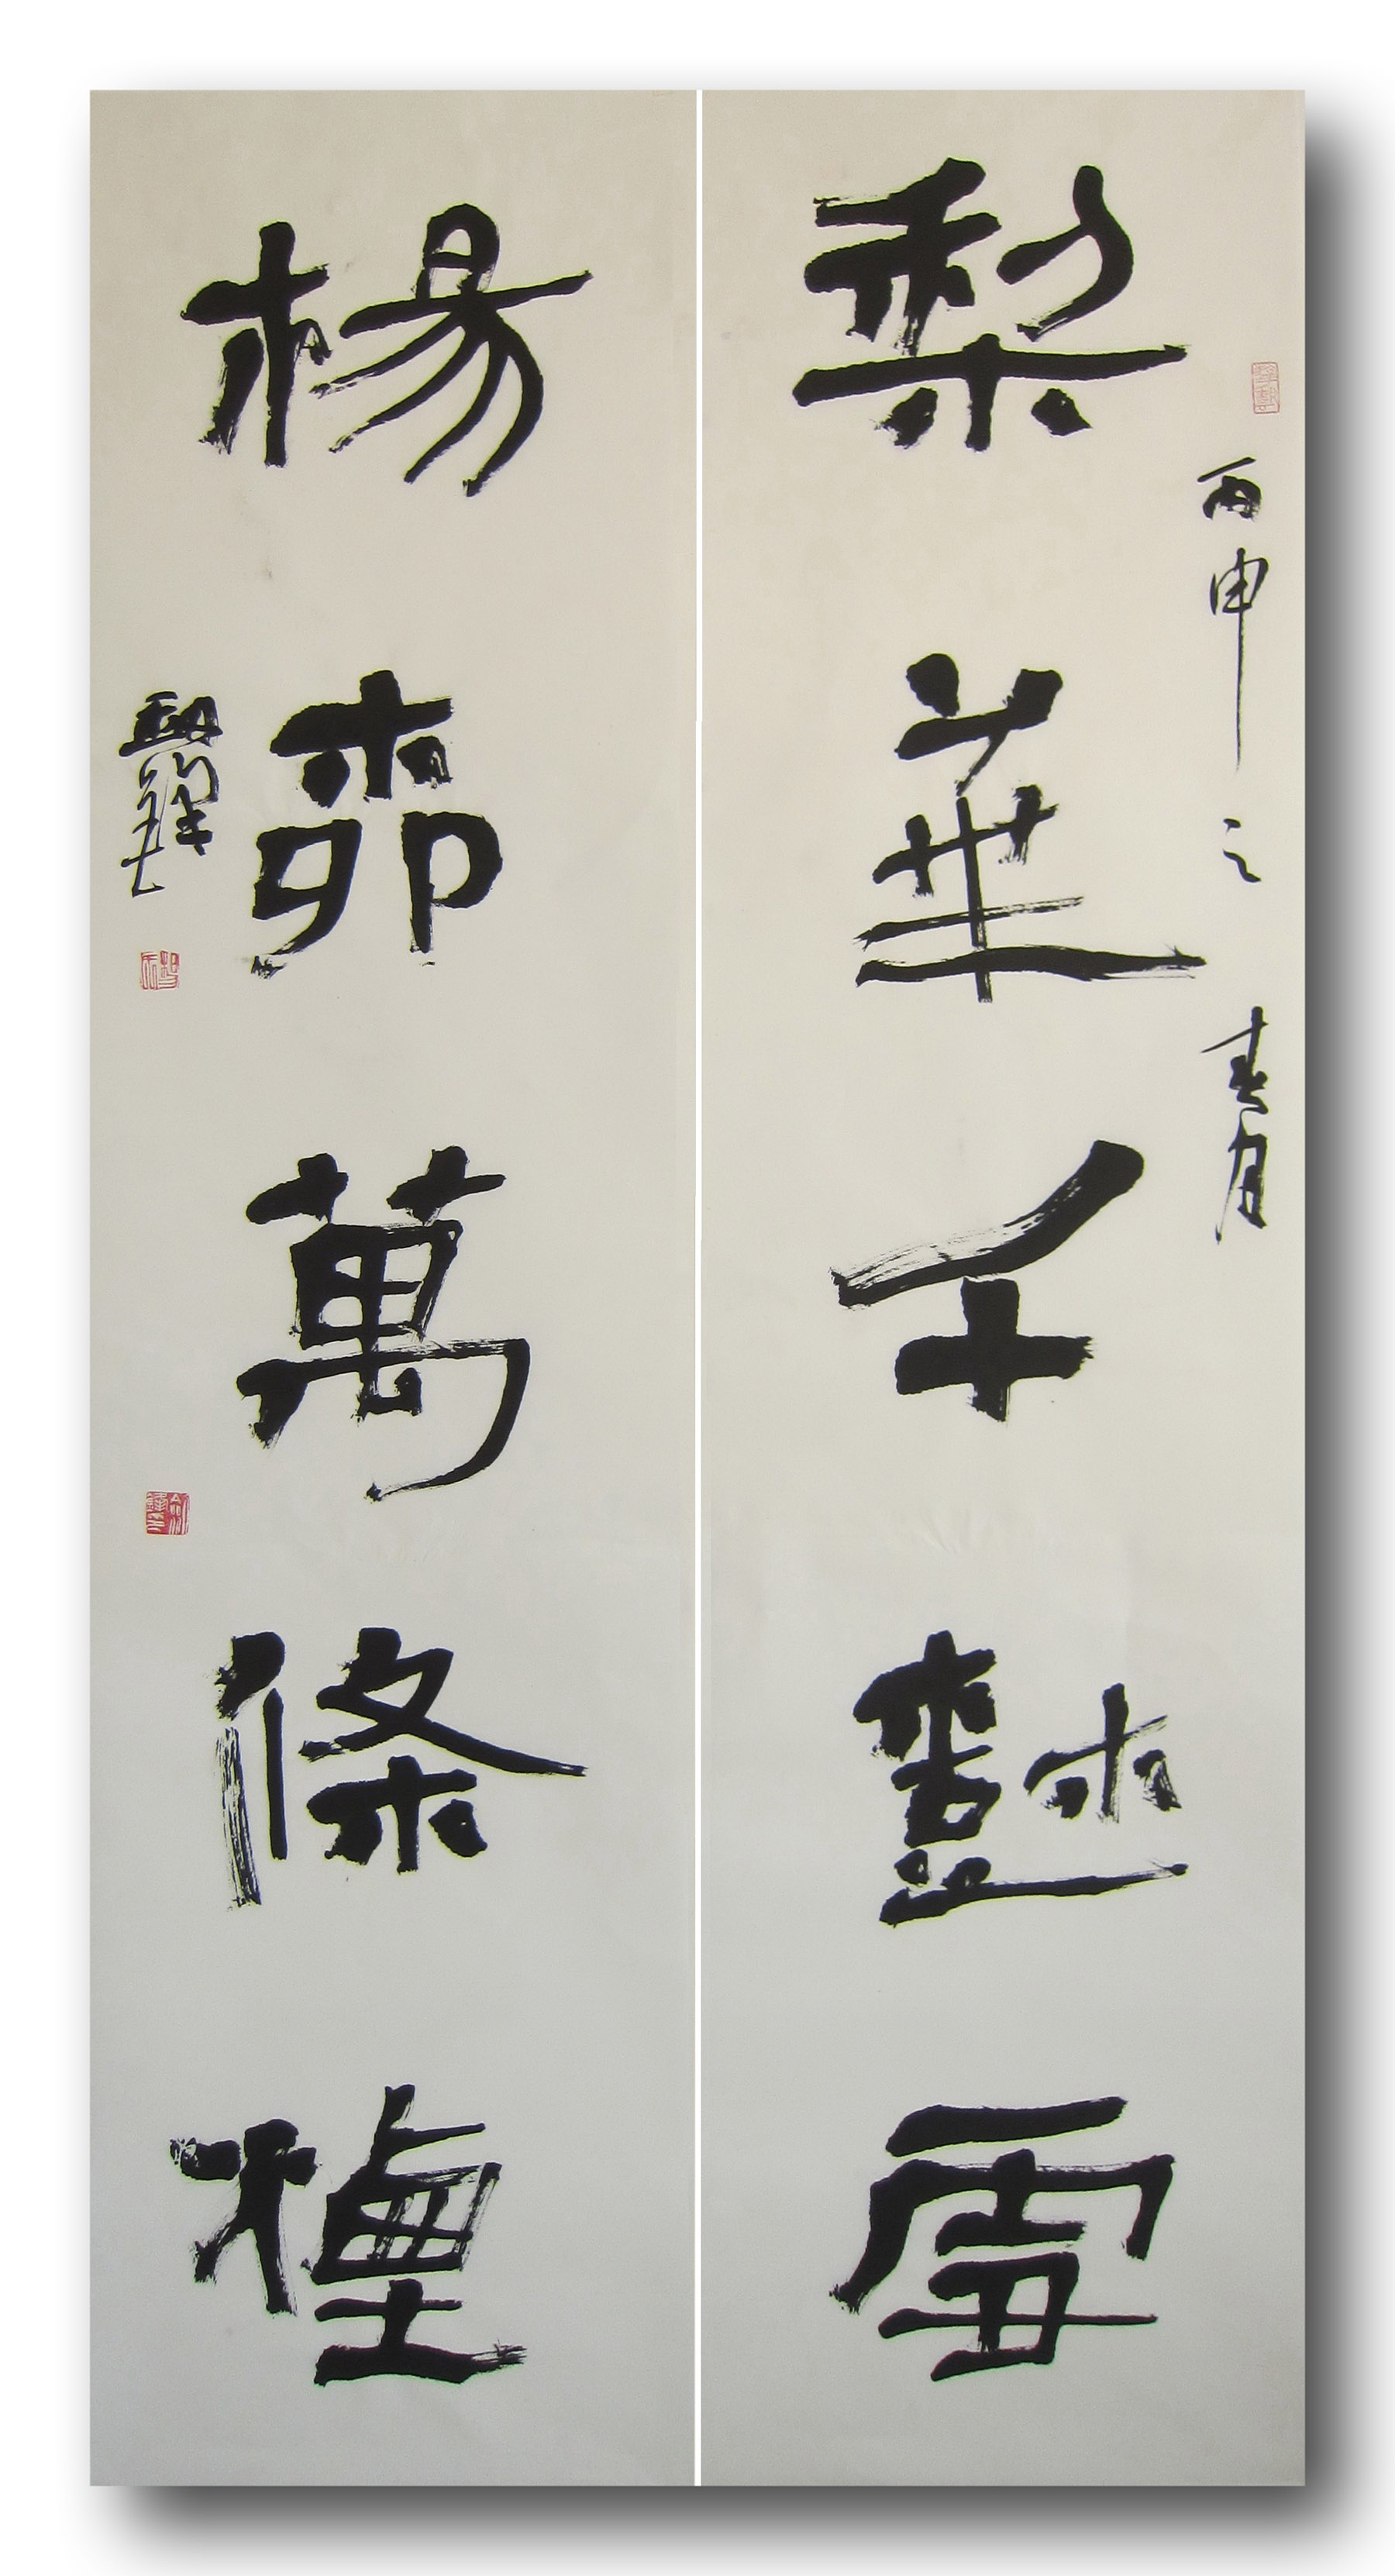 丙申之春月
梨華千樹雪
楊柳萬條煙